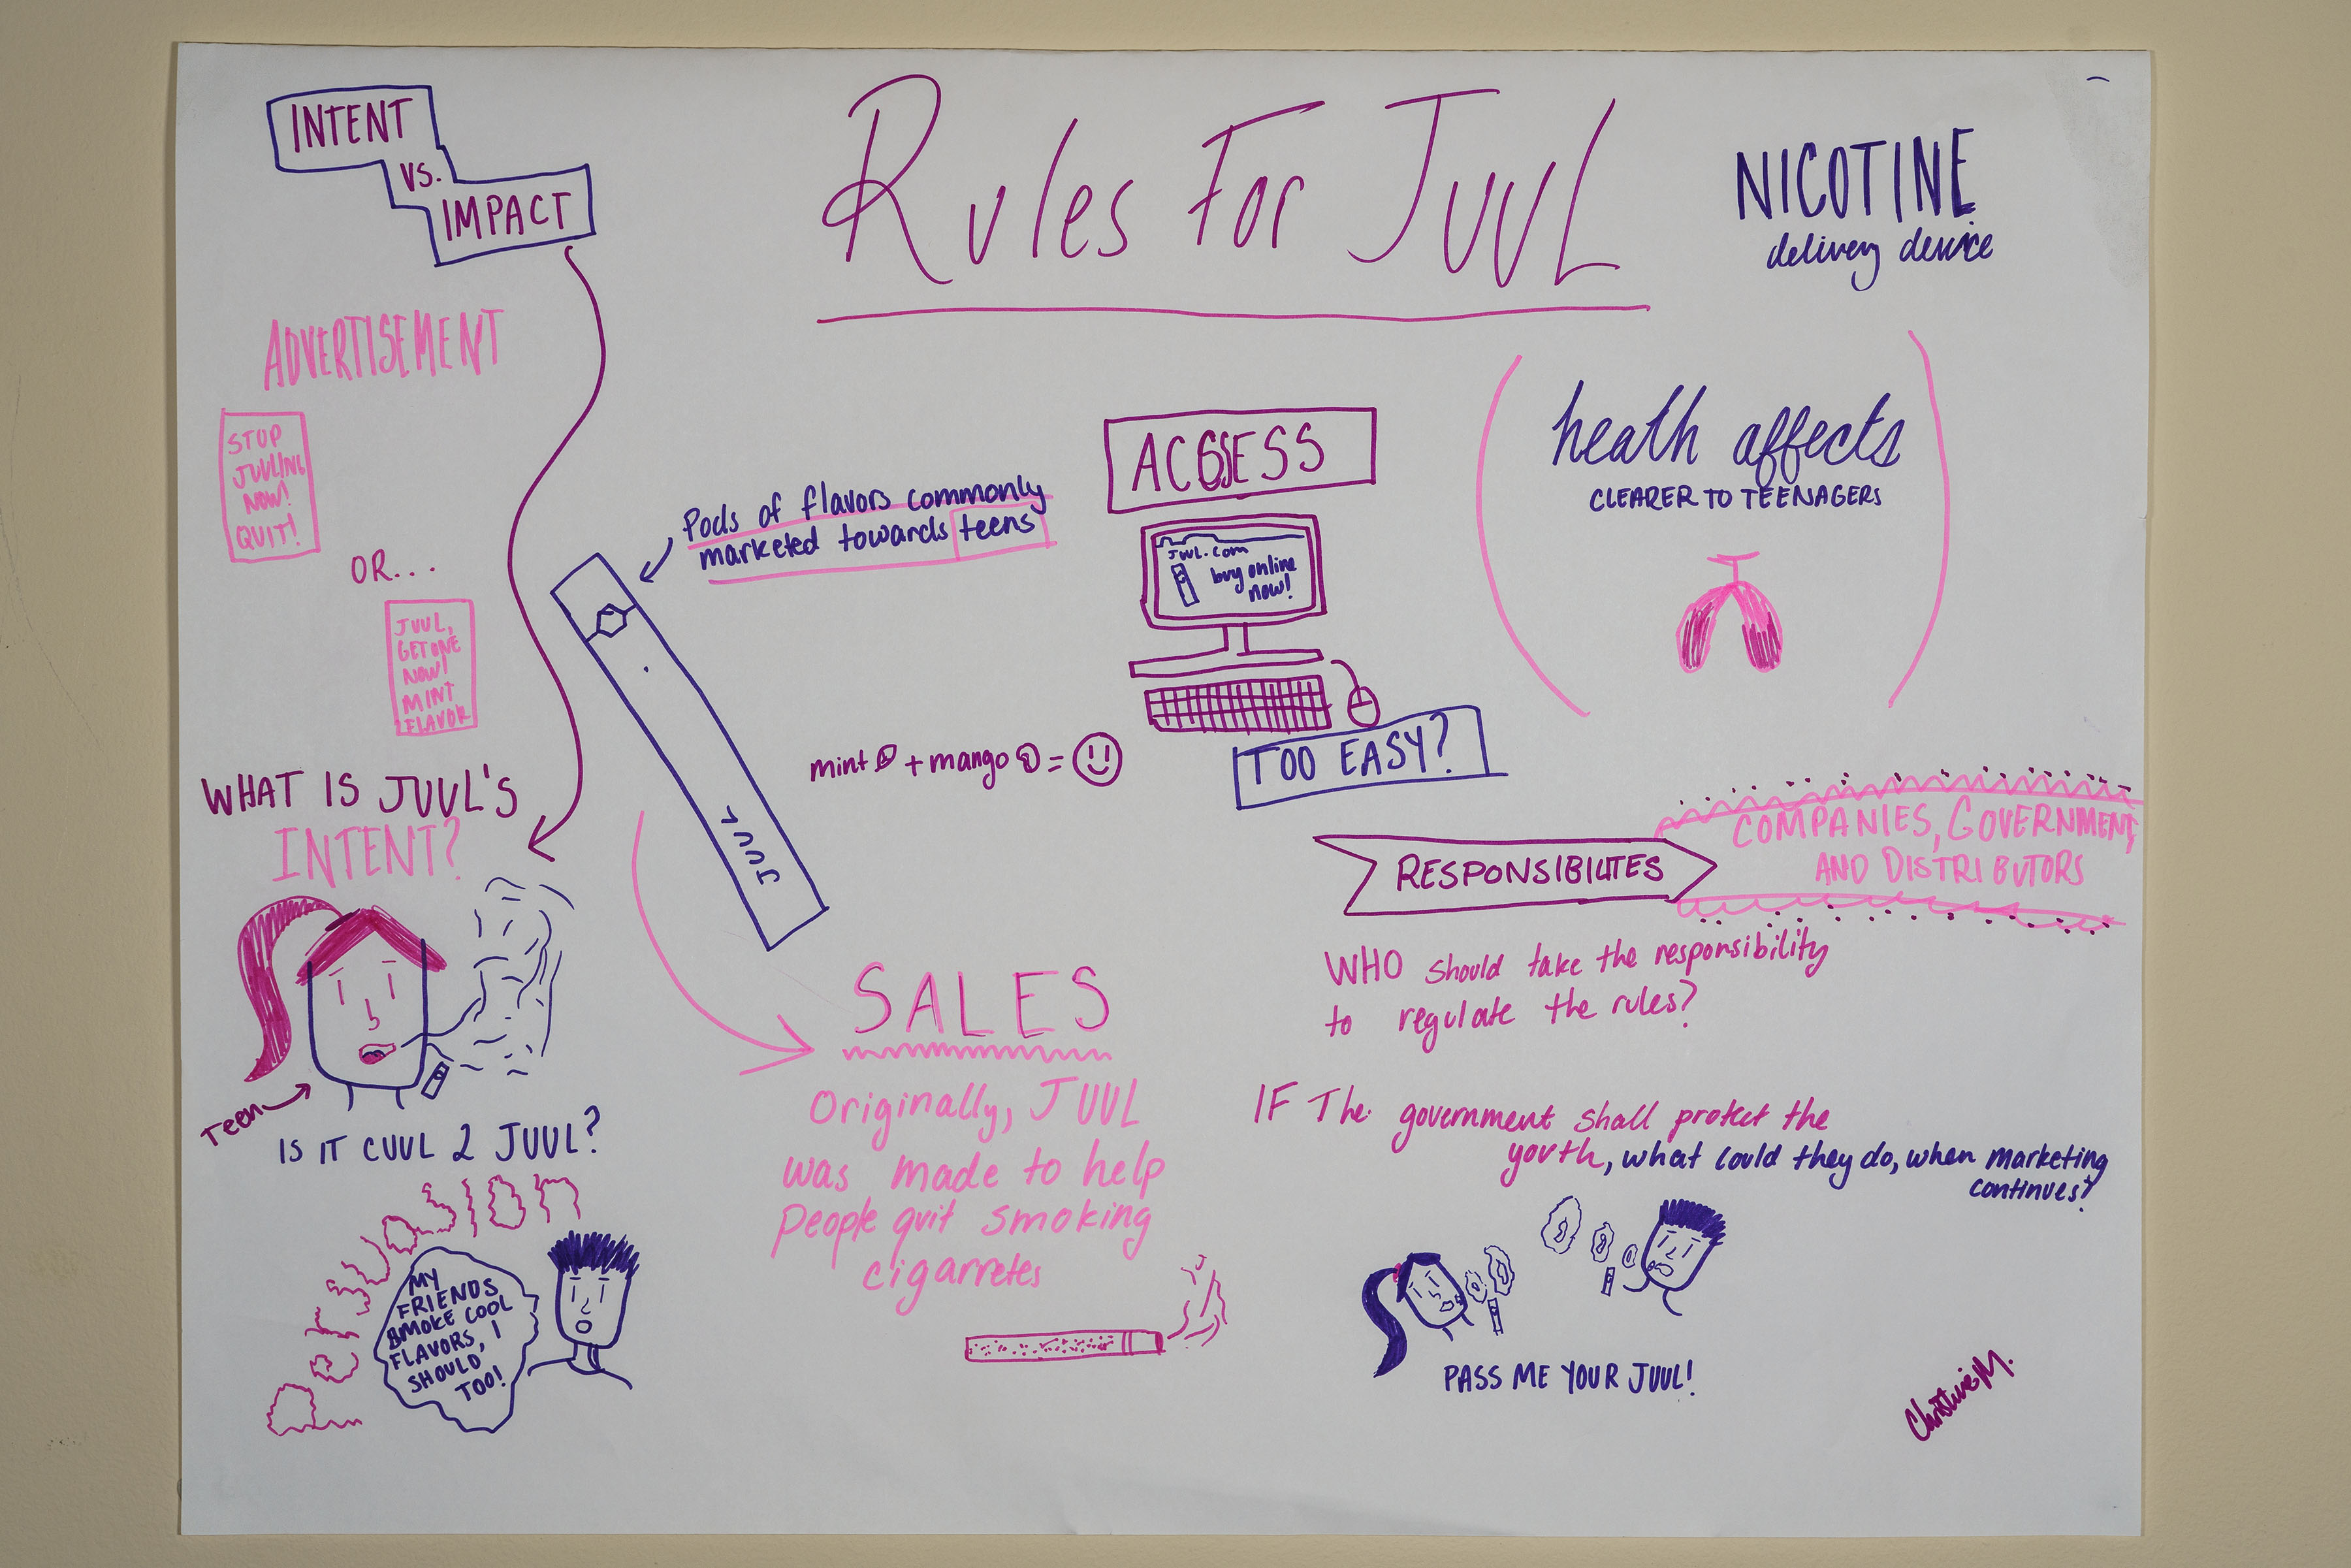 INTENT
VS.
IMPACT
Rules For JUUL
NICOTINE
delivery device
ADVERTISEMENT
STOP
JUULING
NOW!
QUIT!
OR...
JUUL,
GET ONE
NOW!
MINT
FLAVOR
WHAT IS JUUL'S
INTENT?
Teen
IS IT CUUL 2 JUUL?
persuasion
MY
FRIENDS
SMOKE COOL
FLAVORS, I
SHOULD
TOO!
Pods of flavors commonly
marketed towards teens
JUUL
mint + mango =
SALES
Originally, JUUL
was made to help
People quit smoking
cigarretes
ACCESS
JUUL.com
buy online
now!
TOO EASY?
heath affects
CLEARER TO TEENAGERS
RESPONSIBILITES
COMPANIES, GOVERNMENT,
AND DISTRIBUTORS
WHO should take the responsibility
to regulate the rules?
IF The government shall protect the
youth, what could they do, when marketing
continues?
PASS ME YOUR JUUL!
Christine M.